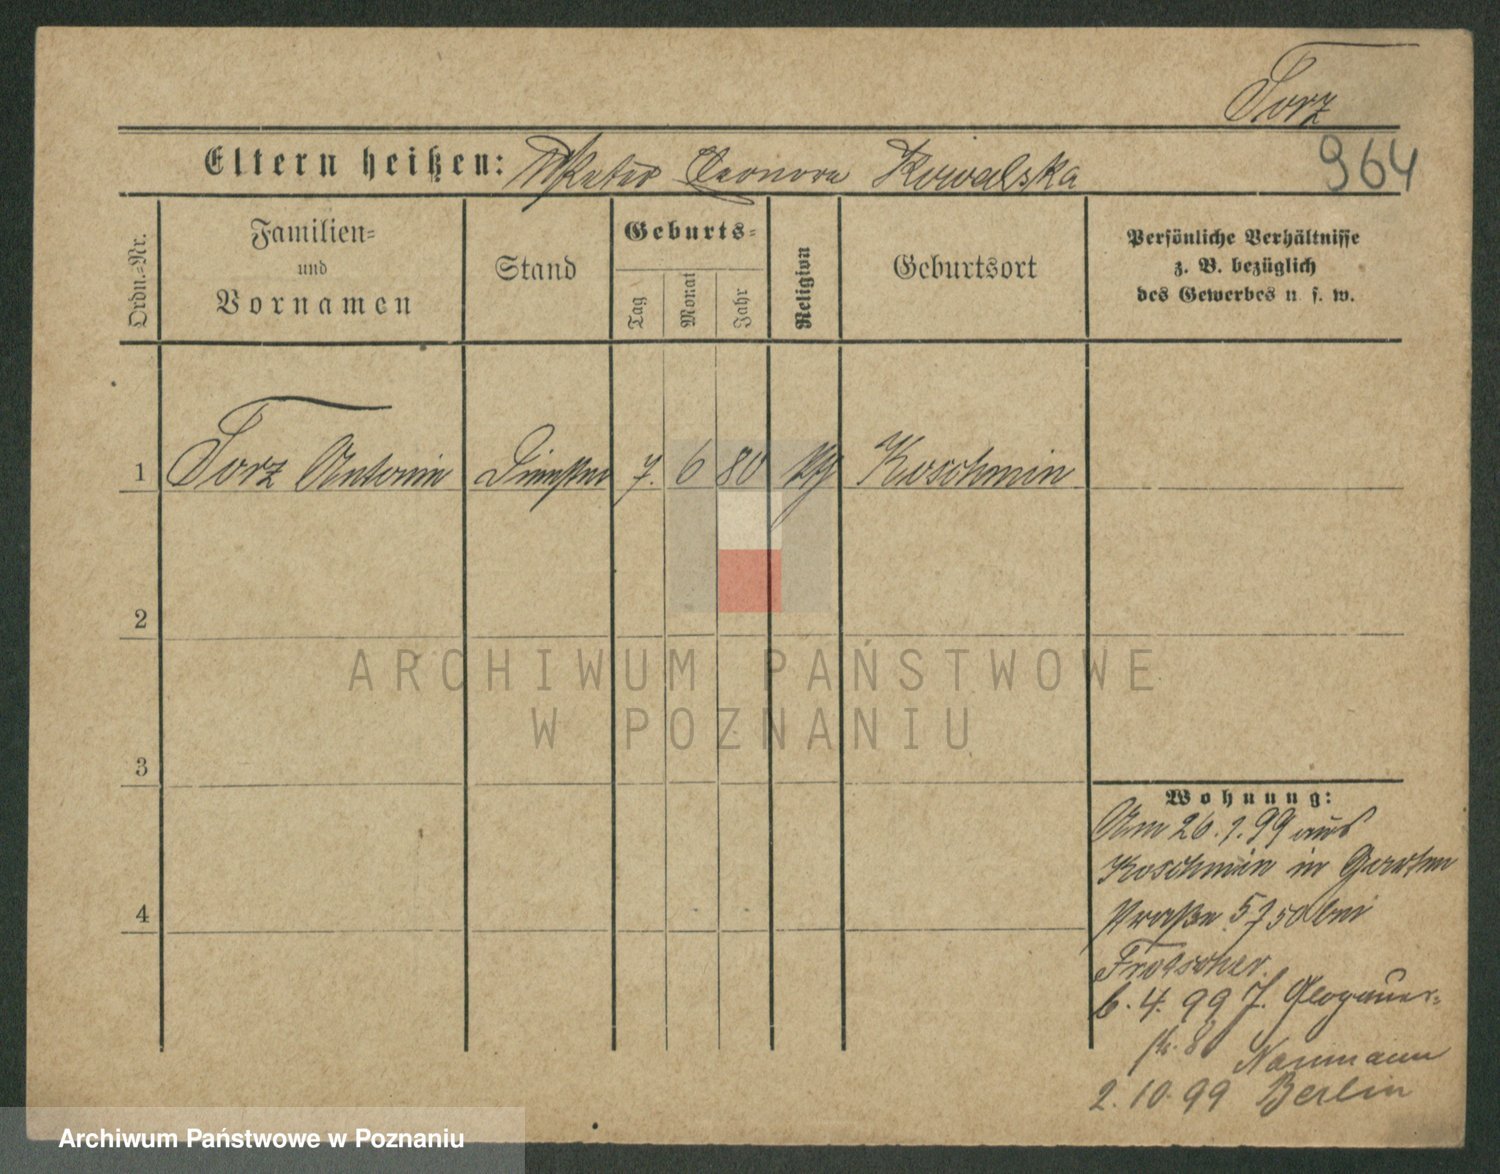 Torz
964
Eltern heißen: Peter Eleonora Kowalska
Ordn.=Nr.
Familien=
und
Vornamen
Stand
Geburts=
Tag
Monat
Jahr
Religion
Geburtsort
Persönliche Verhältnisse
z. B. bezüglich
des Gewerbes u. s. w.
1 Torz Antonie 7. 6 80 Koschmin
2
3
4
Wohnung:
Am 26. 1. 99 aus
Koschmin in Garten
straße 5 bei
Frotscher.
6. 4. 99 Glogauer=
str. 80 Naumann
2. 10. 99 Berlin
ARCHIWUM PAŃSTWOWE
W POZNANIU
Archiwum Państwowe w Poznaniu